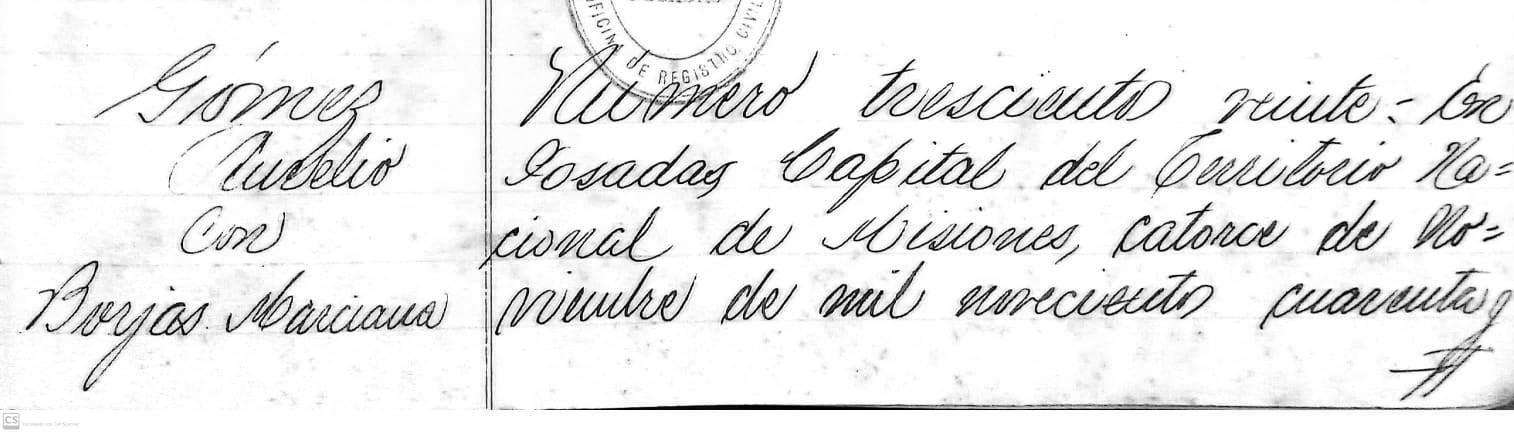 OFICINA DE REGISTRO CIVIL
Gómez
Aurelio
con
Borjas Marciana
Número trescientos veinte = En
Posadas, Capital del Territorio Na=
cional de Misiones, catorce de No=
viembre de mil novecientos cuarenta y
CS